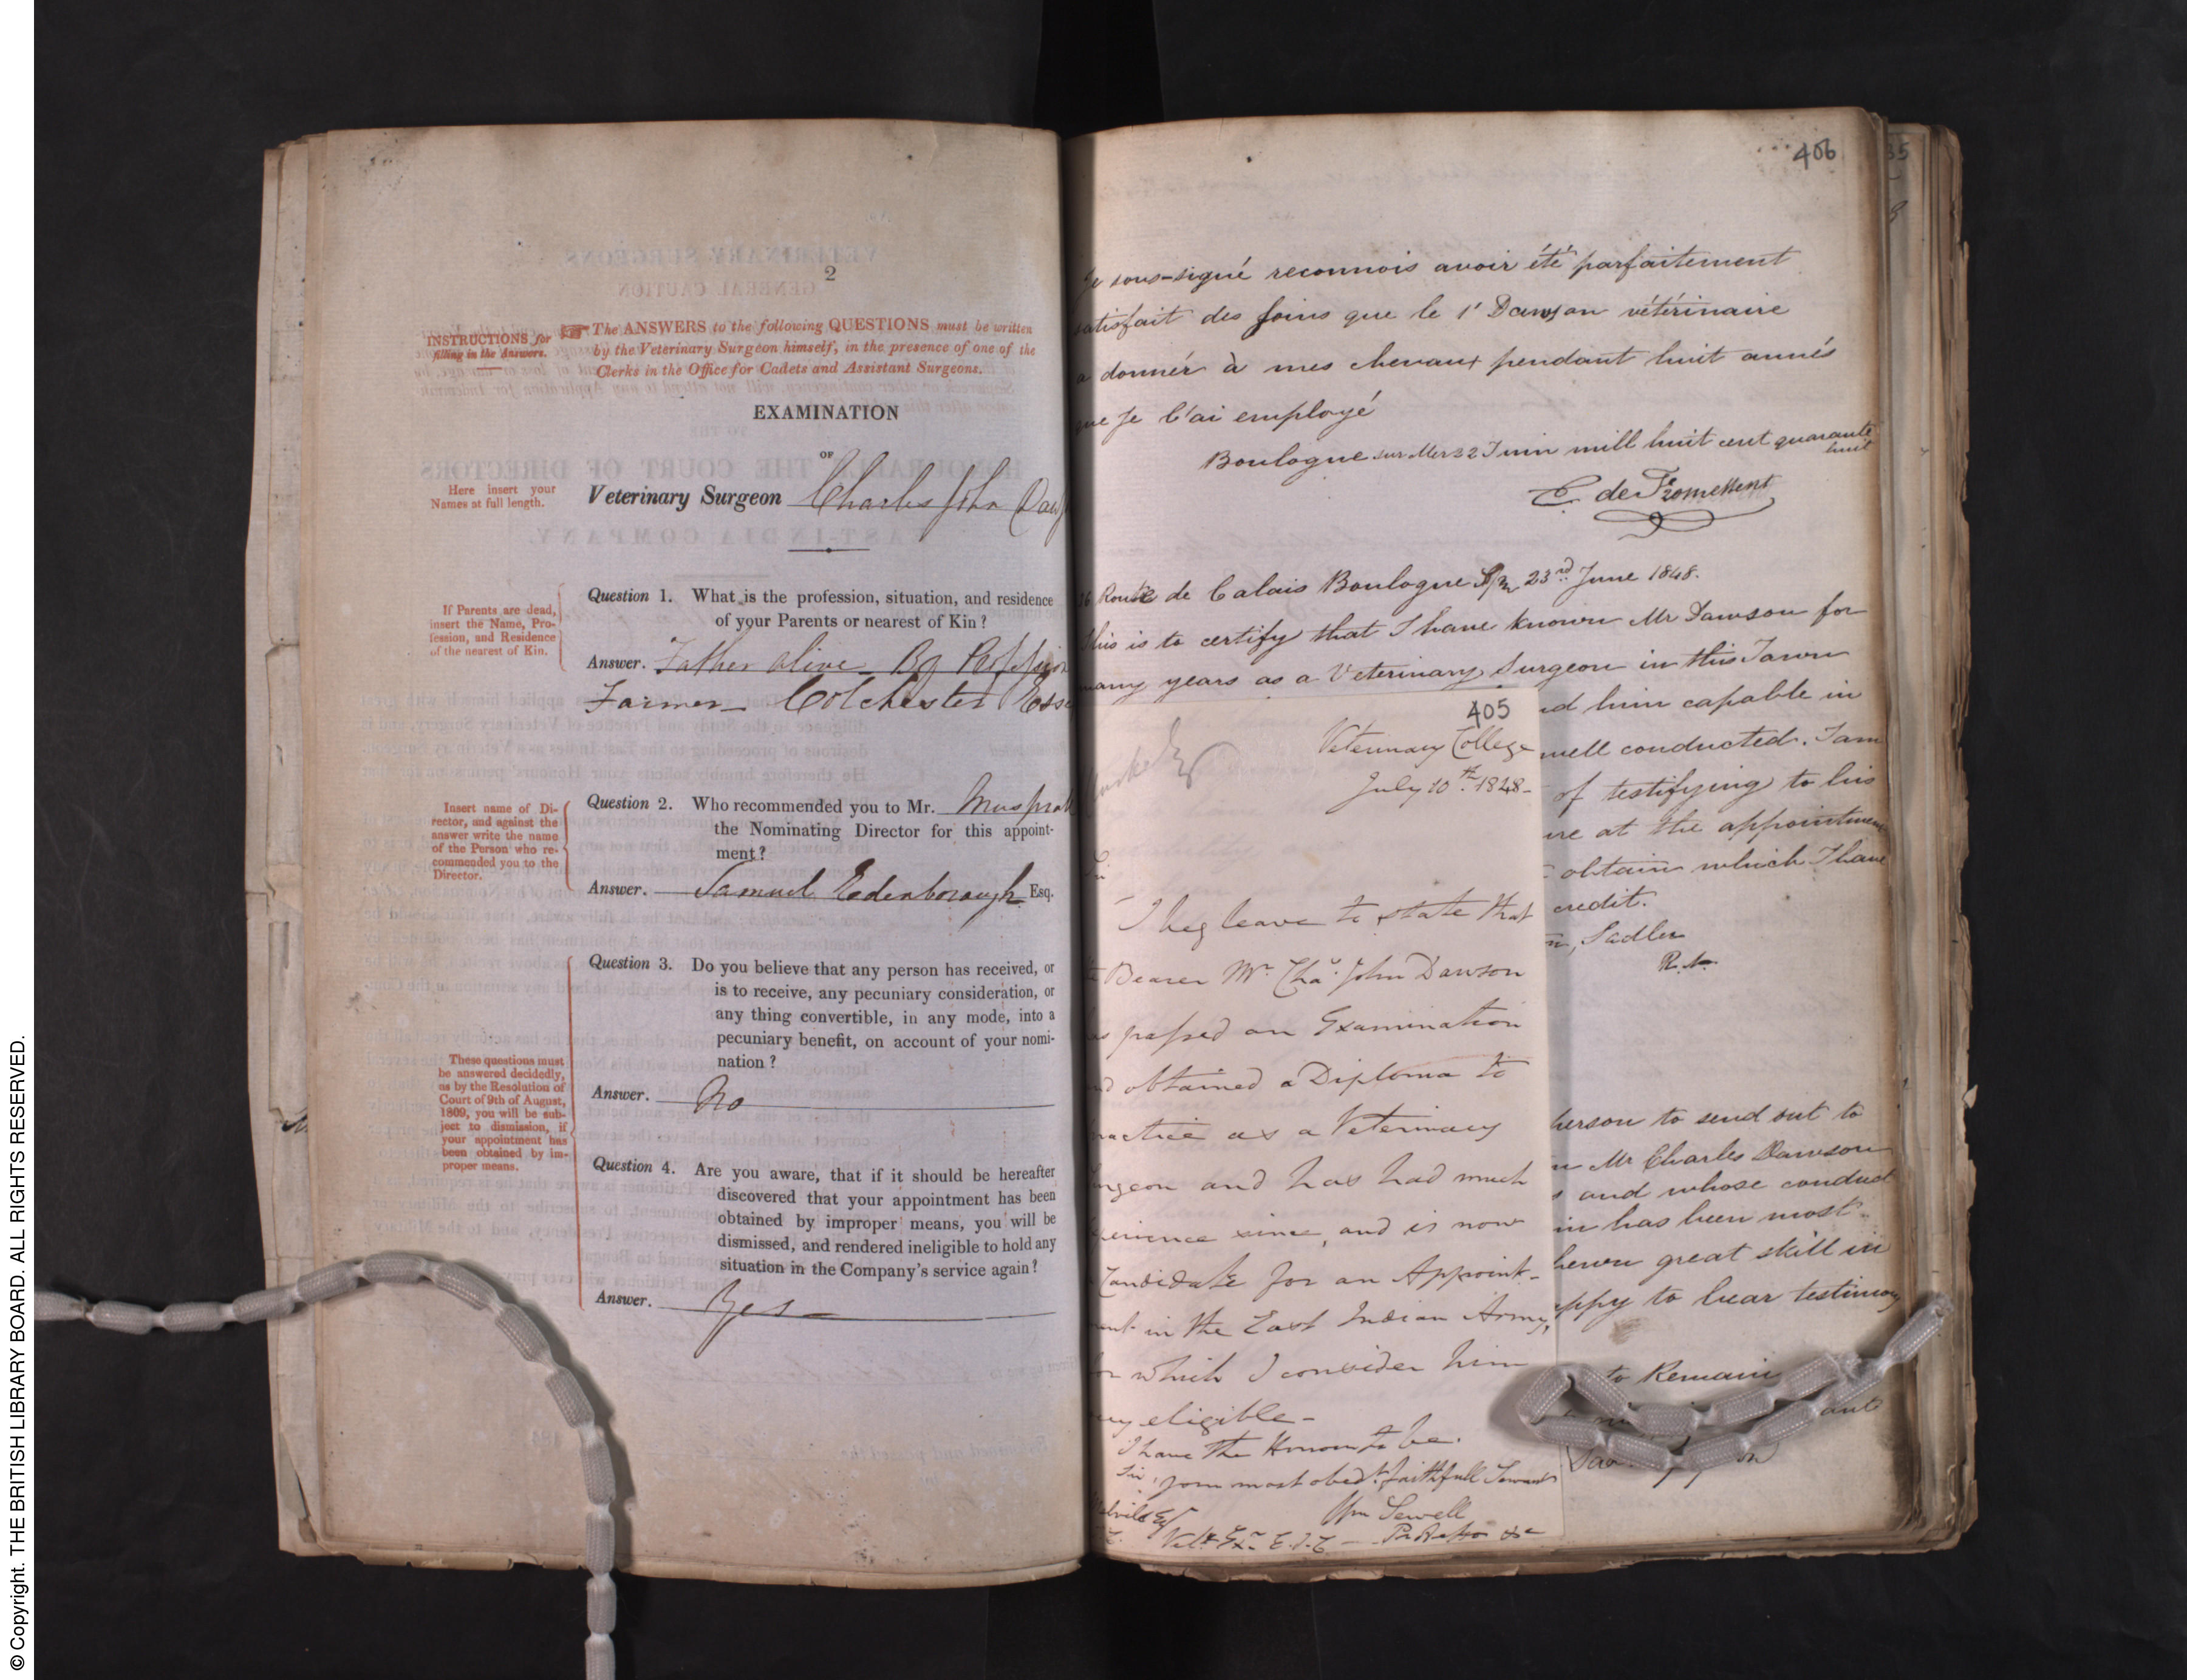 2
INSTRUCTIONS for
filling in the Answers.
The ANSWERS to the following QUESTIONS must be written
by the Veterinary Surgeon himself, in the presence of one of the
Clerks in the Office for Cadets and Assistant Surgeons.
EXAMINATION
OF
Here insert your
Names at full length.
Veterinary Surgeon Charles John
If Parents are dead,
insert the Name, Pro-
fession, and Residence
of the nearest of Kin.
Question 1. What is the profession, situation, and residence
of your Parents or nearest of Kin?
Answer. Father alive By
Farmer Colchester
Insert name of Di-
rector, and against the
answer write the name
of the Person who re-
commended you to the
Director.
Question 2. Who recommended you to Mr.
the Nominating Director for this appoint-
ment?
Answer. Samuel Edenborough Esq.
These questions must
be answered decidedly,
as by the Resolution of
Court of 9th of August,
1809, you will be sub-
ject to dismission, if
your appointment has
been obtained by im-
proper means.
Question 3. Do you believe that any person has received, or
is to receive, any pecuniary consideration, or
any thing convertible, in any mode, into a
pecuniary benefit, on account of your nomi-
nation?
Answer. No
Question 4. Are you aware, that if it should be hereafter
discovered that your appointment has been
obtained by improper means, you will be
dismissed, and rendered ineligible to hold any
situation in the Company's service again?
Answer. Yes
406
35
Je sous-signé reconnois avoir été parfaitement
satisfait des soins que le Sr Dawson vétérinaire
a donnér à mes chevaux pendant huit annés
que Je l'ai employé
Boulogne sur Mer 22 Juin mill huit cent quarante
huit
C. de Fromessent
Route de Calais Boulogne S/m 23rd June 1848.
This is to certify that I have known Mr Dawson for
many years as a Veterinary Surgeon in this Town
him capable in
well conducted. I am
of testifying to his
at the appointment
obtain which I have
credit.
Sadler
R.N.
person to send out to
Mr Charles Dawson
and whose conduct
has been most
great skill in
to bear testimony
to Remain
405
Veterinary College
July 10th. 1848-
I beg leave to state that
Bearer Mr. Chas. John Dawson
passed an Examination
obtained a Diploma to
as a Veterinary
and has had much
since, and is now
Candidate for an Appoint-
in the East Indian Army,
which I consider him
eligible-
I have the Honour to be.
Sir, your most obedt. faithfull Servant
Wm Sewell
© Copyright. THE BRITISH LIBRARY BOARD. ALL RIGHTS RESERVED.